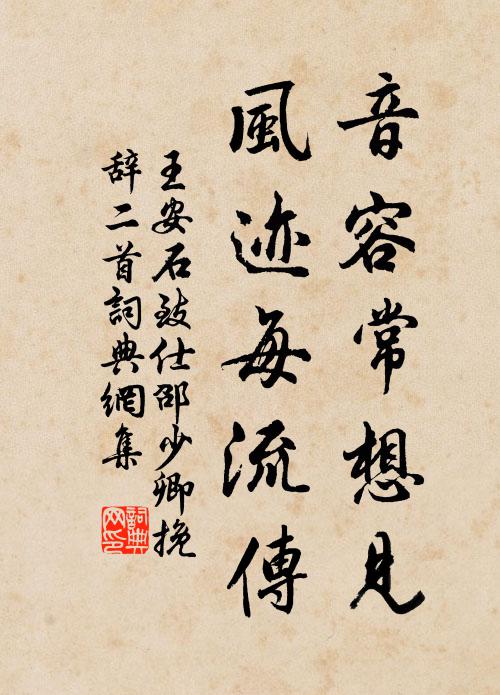 音容常想見
風迹每流傳
王安石致仕邵少卿挽
辞二首詞典網集
詞典
网印